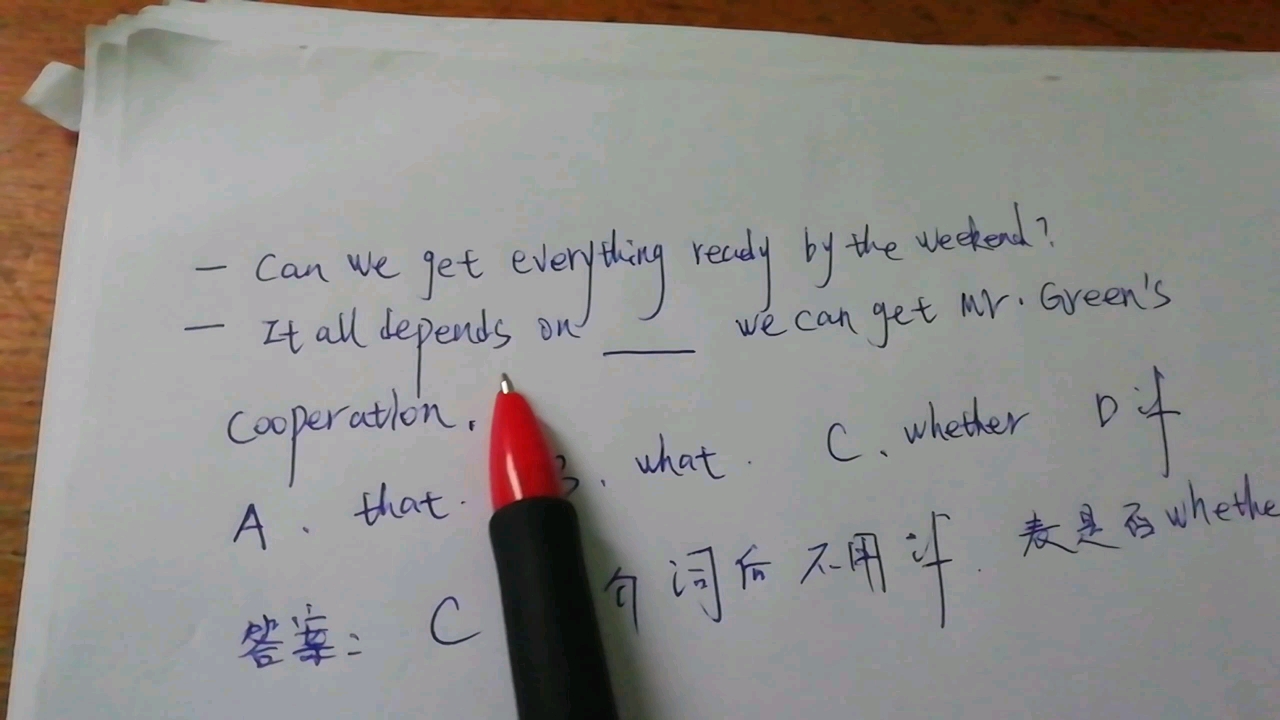 — Can we get everything ready by the weekend?
— It all depends on ____ we can get Mr. Green's
cooperation.
A. that. B. what. C. whether D if
答案: C 介词后不用if. 表是否whethe